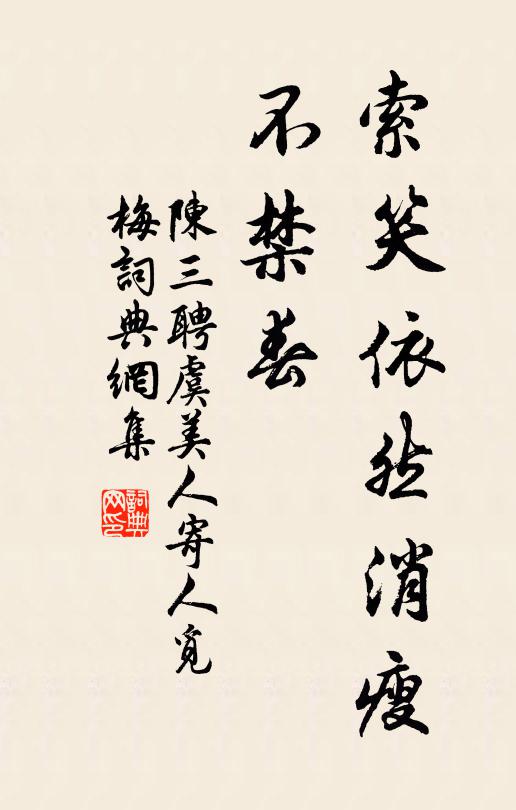 索笑依然消瘦
不禁春
陳三聘虞美人寄人覓
梅詞典網集
詞典網印